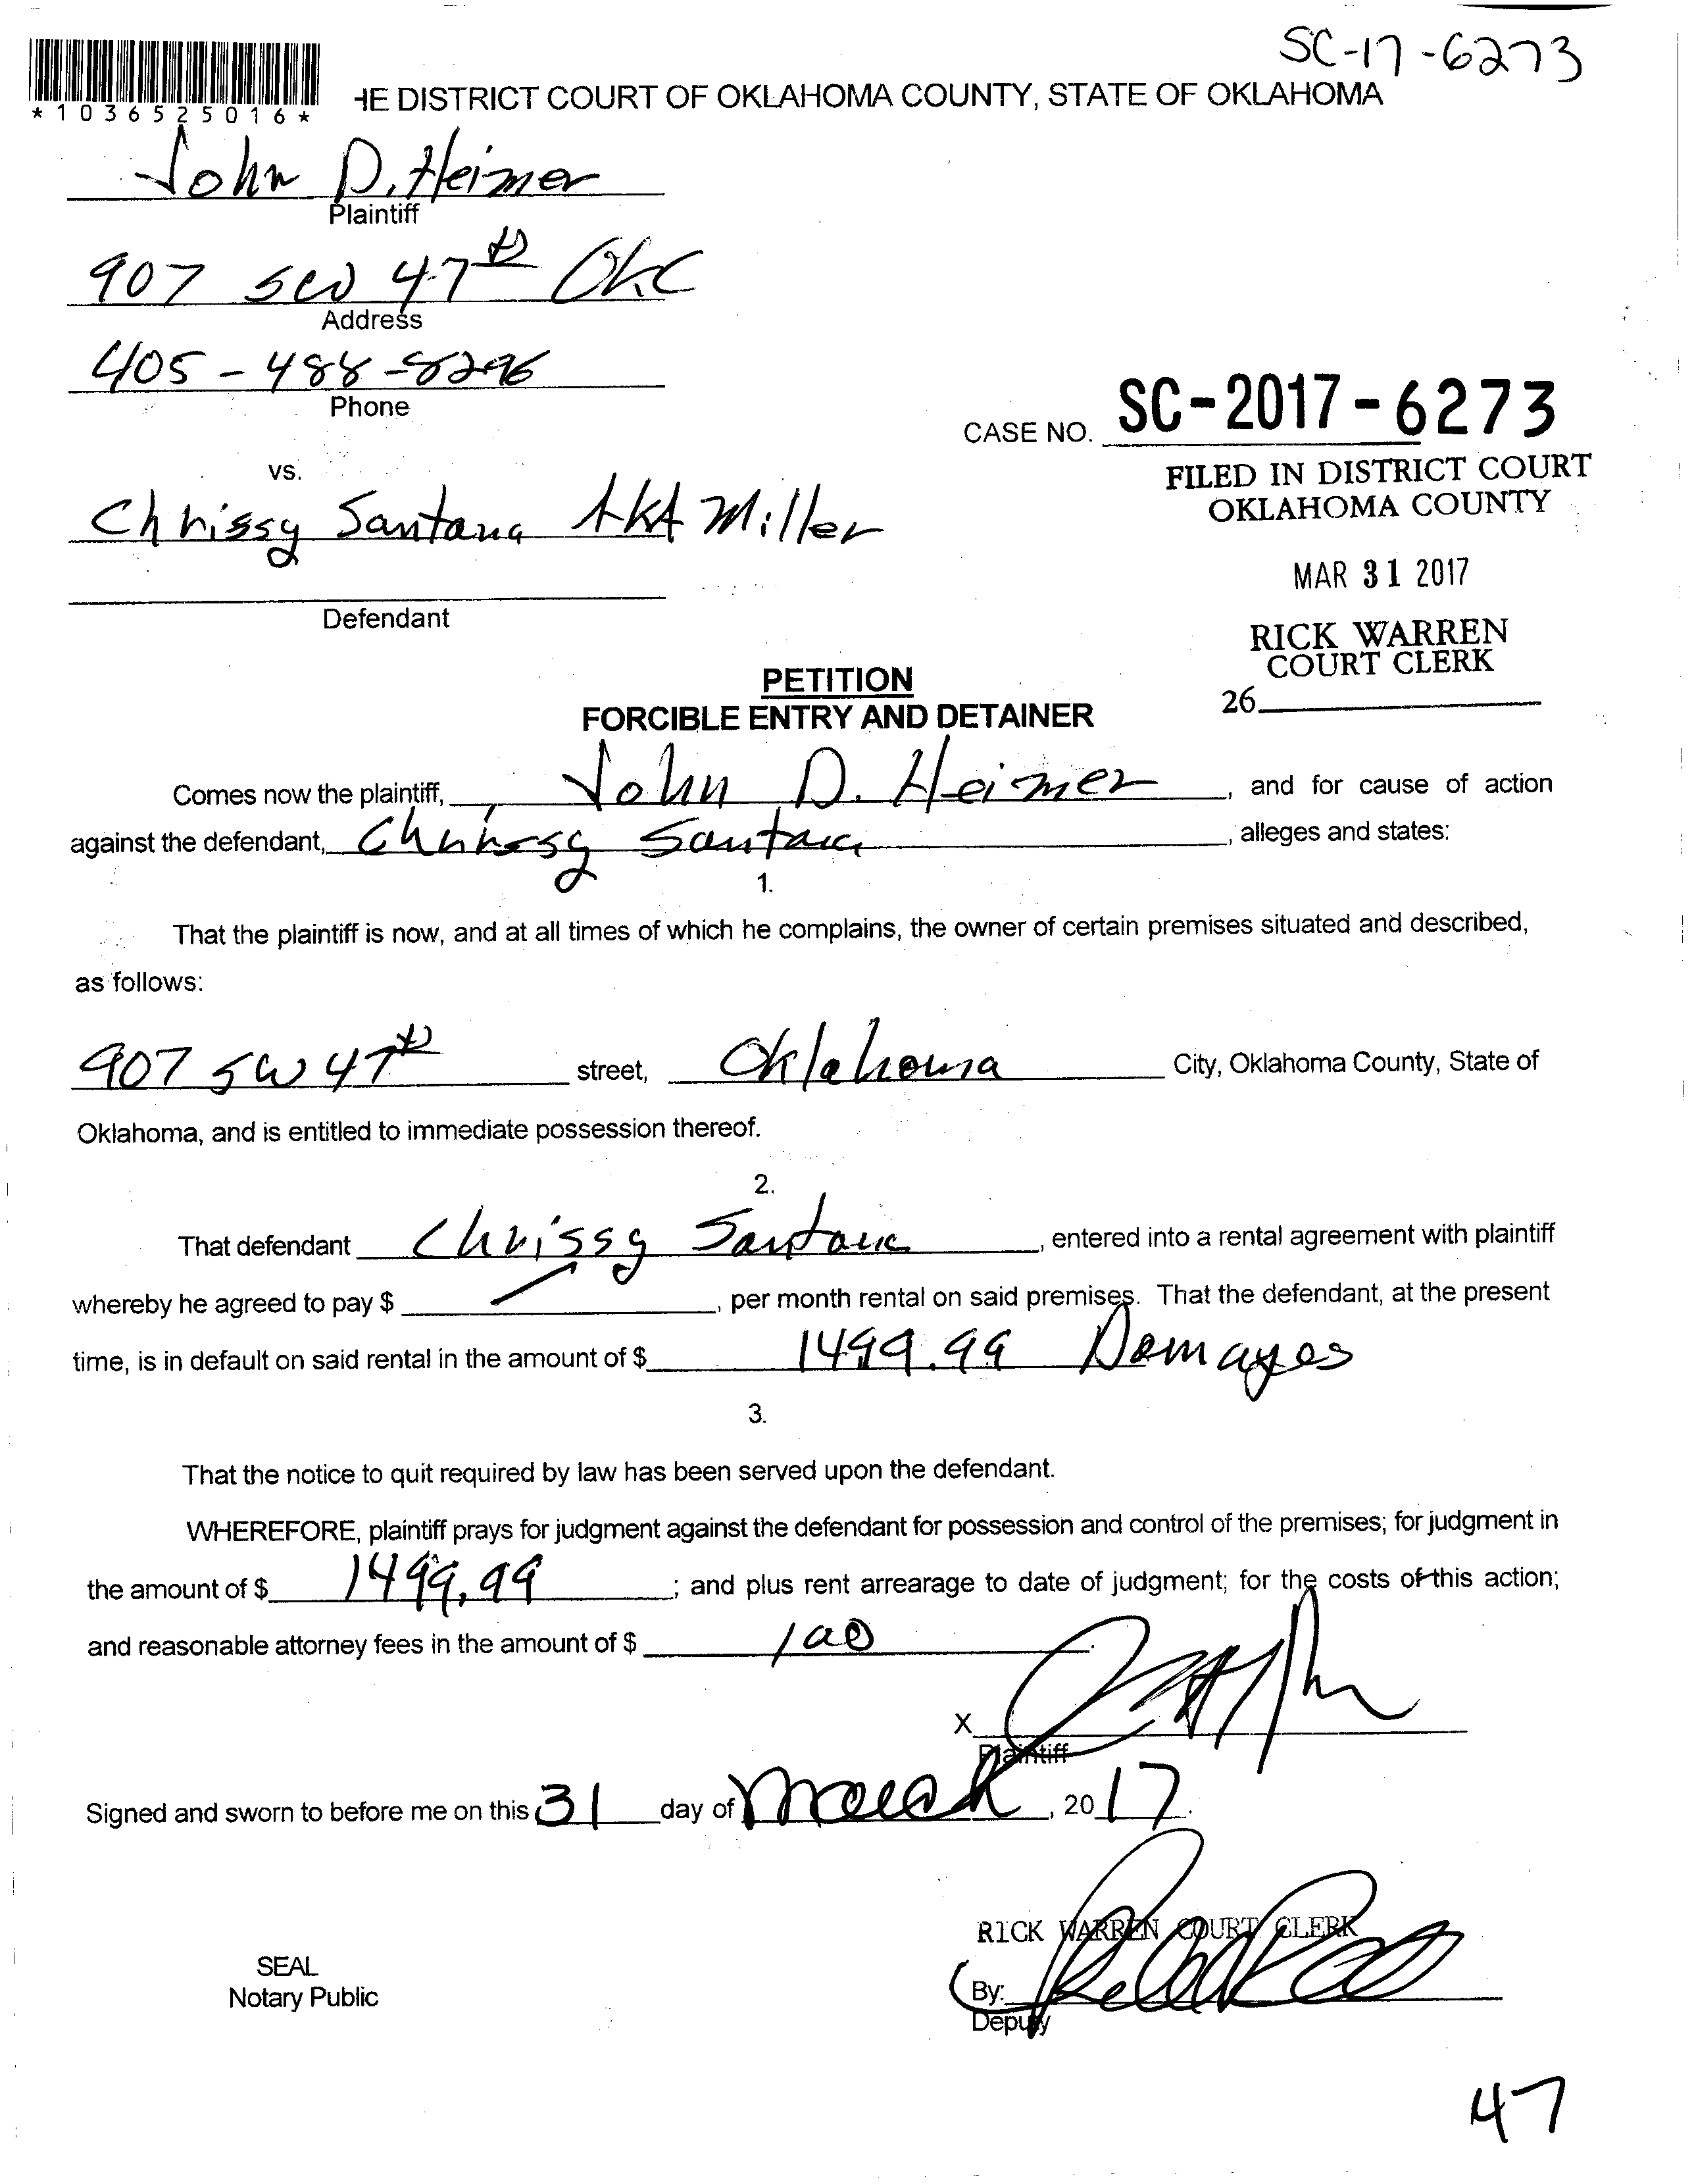 SC-17-6273
*1036525016*
HE DISTRICT COURT OF OKLAHOMA COUNTY, STATE OF OKLAHOMA
John D. Heimer
Plaintiff
907 SW 47th OKC
Address
405-488-8296
Phone
CASE NO. SC-2017-6273
vs.
FILED IN DISTRICT COURT
OKLAHOMA COUNTY
Chrissy Santana AKA Miller
MAR 31 2017
Defendant
RICK WARREN
COURT CLERK
26
PETITION
FORCIBLE ENTRY AND DETAINER
Comes now the plaintiff, John D. Heimer, and for cause of action
against the defendant, Chrissy Santana, alleges and states:
1.
That the plaintiff is now, and at all times of which he complains, the owner of certain premises situated and described,
as follows:
907 SW 47th street, Oklahoma City, Oklahoma County, State of
Oklahoma, and is entitled to immediate possession thereof.
2.
That defendant Chrissy Santana, entered into a rental agreement with plaintiff
whereby he agreed to pay $ , per month rental on said premises. That the defendant, at the present
time, is in default on said rental in the amount of $ 1499.99 Damages
3.
That the notice to quit required by law has been served upon the defendant.
WHEREFORE, plaintiff prays for judgment against the defendant for possession and control of the premises; for judgment in
the amount of $ 1499.99; and plus rent arrearage to date of judgment; for the costs of this action;
and reasonable attorney fees in the amount of $ 100.
X
Plaintiff
Signed and sworn to before me on this 31 day of March, 2017.
RICK WARREN COURT CLERK
SEAL
Notary Public
By:
Deputy
47